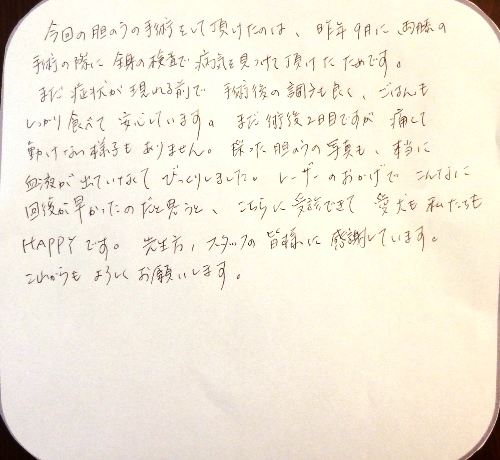 今回の胆のうの手術をして頂けたのは、昨年9月に両膝の
手術の際に全身の検査で病気を見つけて頂けたためです。
まだ症状が現れる前で手術後の調子も良く、ごはんも
しっかり食べて安心しています。まだ術後2日目ですが痛くて
動けない様子もありません。採った胆のうの写真も、本当に
血液が出ていなくてびっくりしました。レーザーのおかげでこんなに
回復が早かったのだと思うと、こちらに受診できて愛犬も私たちも
HAPPYです。先生方、スタッフの皆様に感謝しています。
これからもよろしくお願いします。